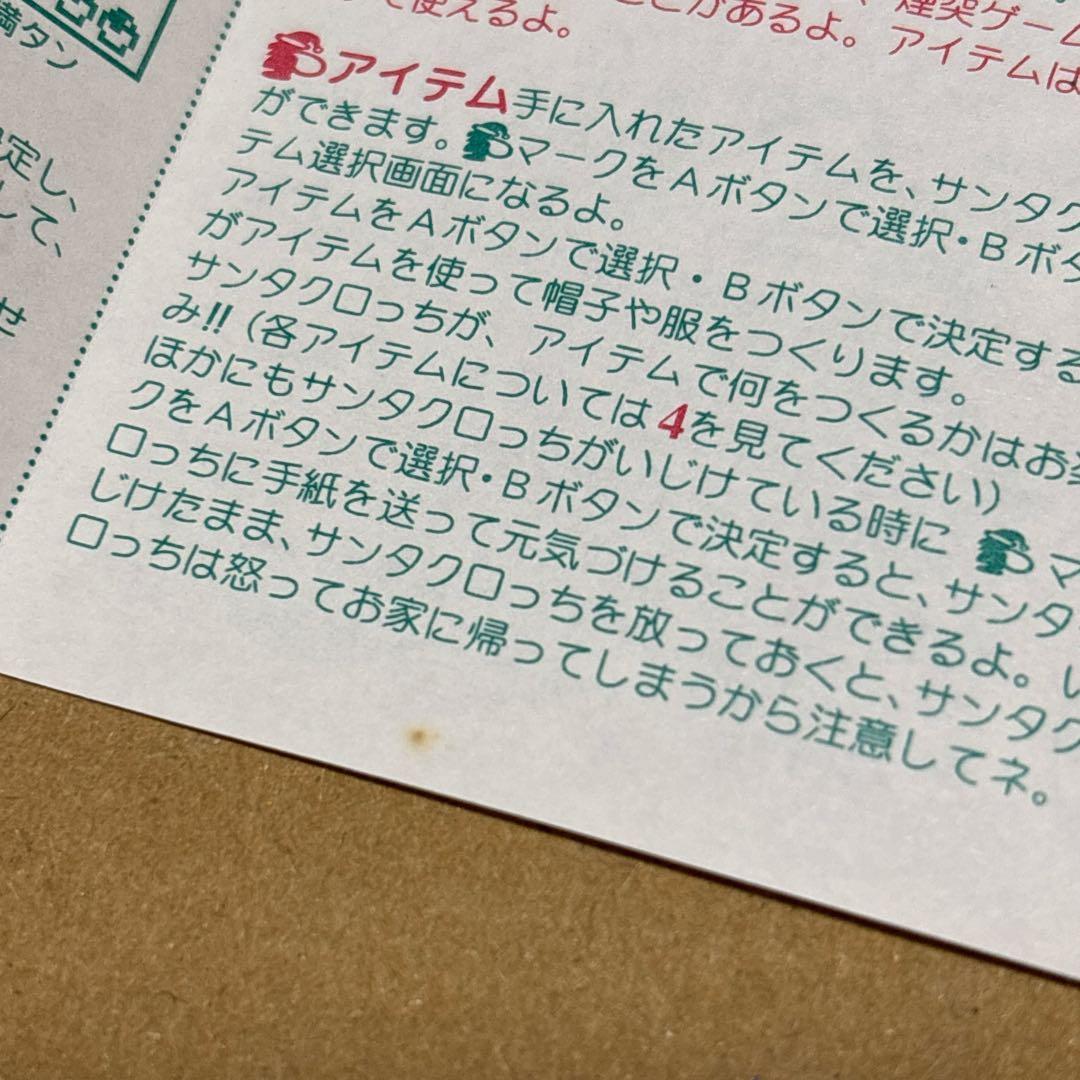 満タン
定し、
して、
せ
煙突ゲーム
って使えるよ。
ことがあるよ。アイテムは
アイテム手に入れたアイテムを、サンタク
ができます。マークをAボタンで選択・Bボタ
テム選択画面になるよ。
アイテムをAボタンで選択・Bボタンで決定する
がアイテムを使って帽子や服をつくります。
サンタクロっちが、アイテムで何をつくるかはお楽
み!!(各アイテムについては4を見てください)
ほかにもサンタクロっちがいじけている時に マ
クをAボタンで選択・Bボタンで決定すると、サンタ
ロっちに手紙を送って元気づけることができるよ。い
じけたまま、サンタクロっちを放っておくと、サンタク
ロっちは怒ってお家に帰ってしまうから注意してネ。